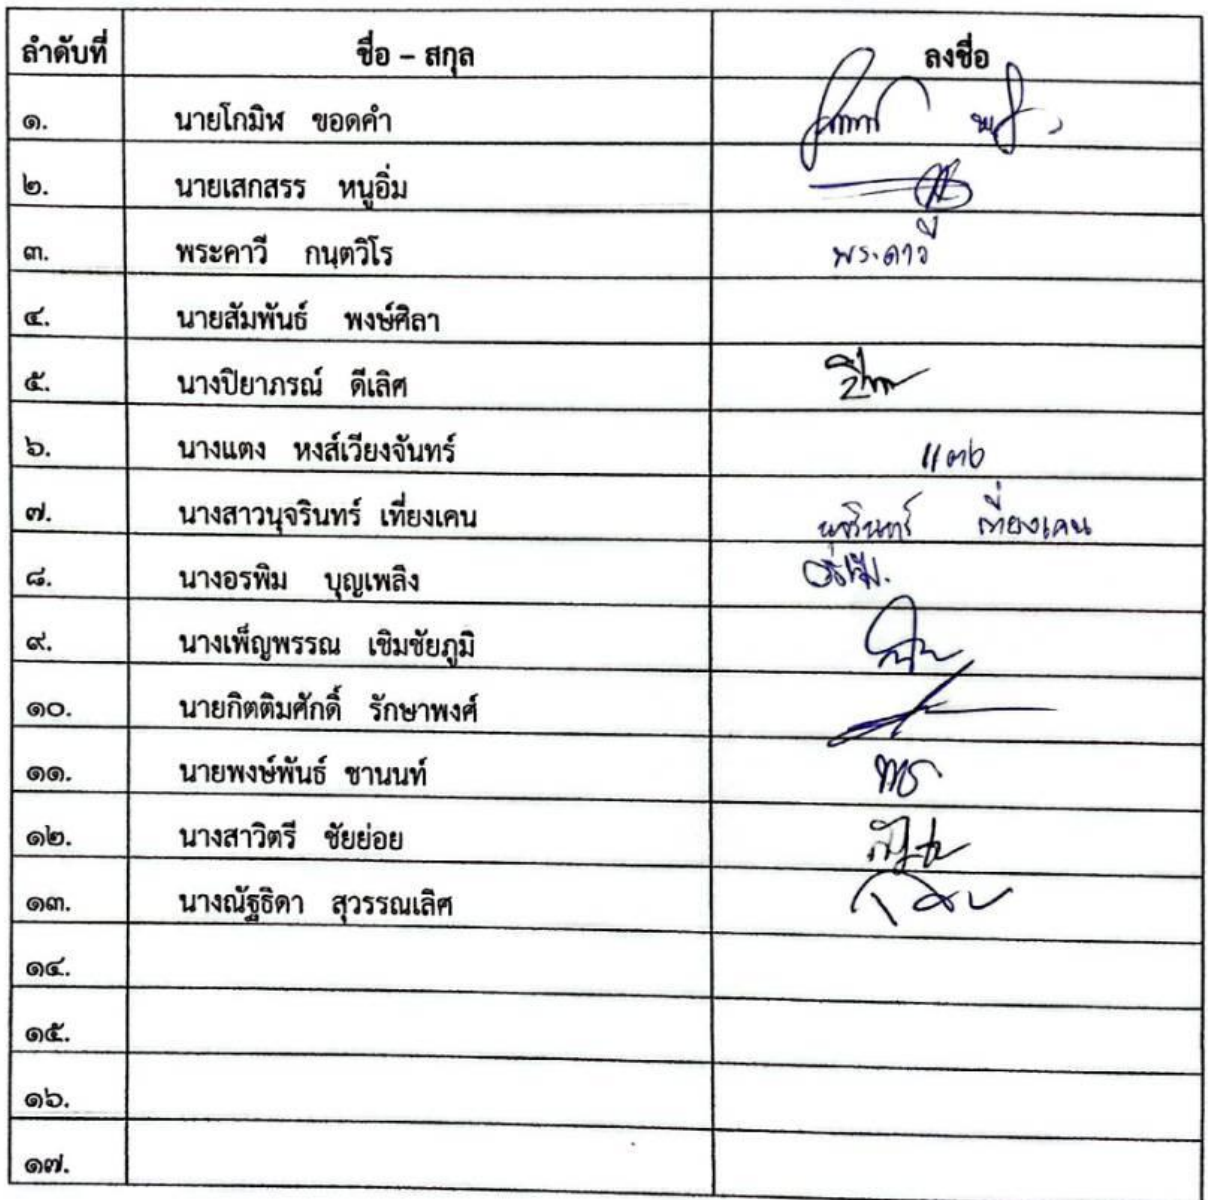 ลำดับที่ ชื่อ – สกุล ลงชื่อ
๑. นายโกมิฬ ขอดคำ
๒. นายเสกสรร หนูอิ่ม
๓. พระคาวี กนฺตวิโร พระคาวี
๔. นายสัมพันธ์ พงษ์ศิลา
๕. นางปิยาภรณ์ ดีเลิศ
๖. นางแตง หงส์เวียงจันทร์ แตง
๗. นางสาวนุจรินทร์ เที่ยงเคน นุจรินทร์ เที่ยงเคน
๘. นางอรพิม บุญเพลิง
๙. นางเพ็ญพรรณ เชิมชัยภูมิ
๑๐. นายกิตติมศักดิ์ รักษาพงศ์
๑๑. นายพงษ์พันธ์ ชานนท์
๑๒. นางสาวิตรี ชัยย่อย
๑๓. นางณัฐธิดา สุวรรณเลิศ
๑๔.
๑๕.
๑๖.
๑๗.